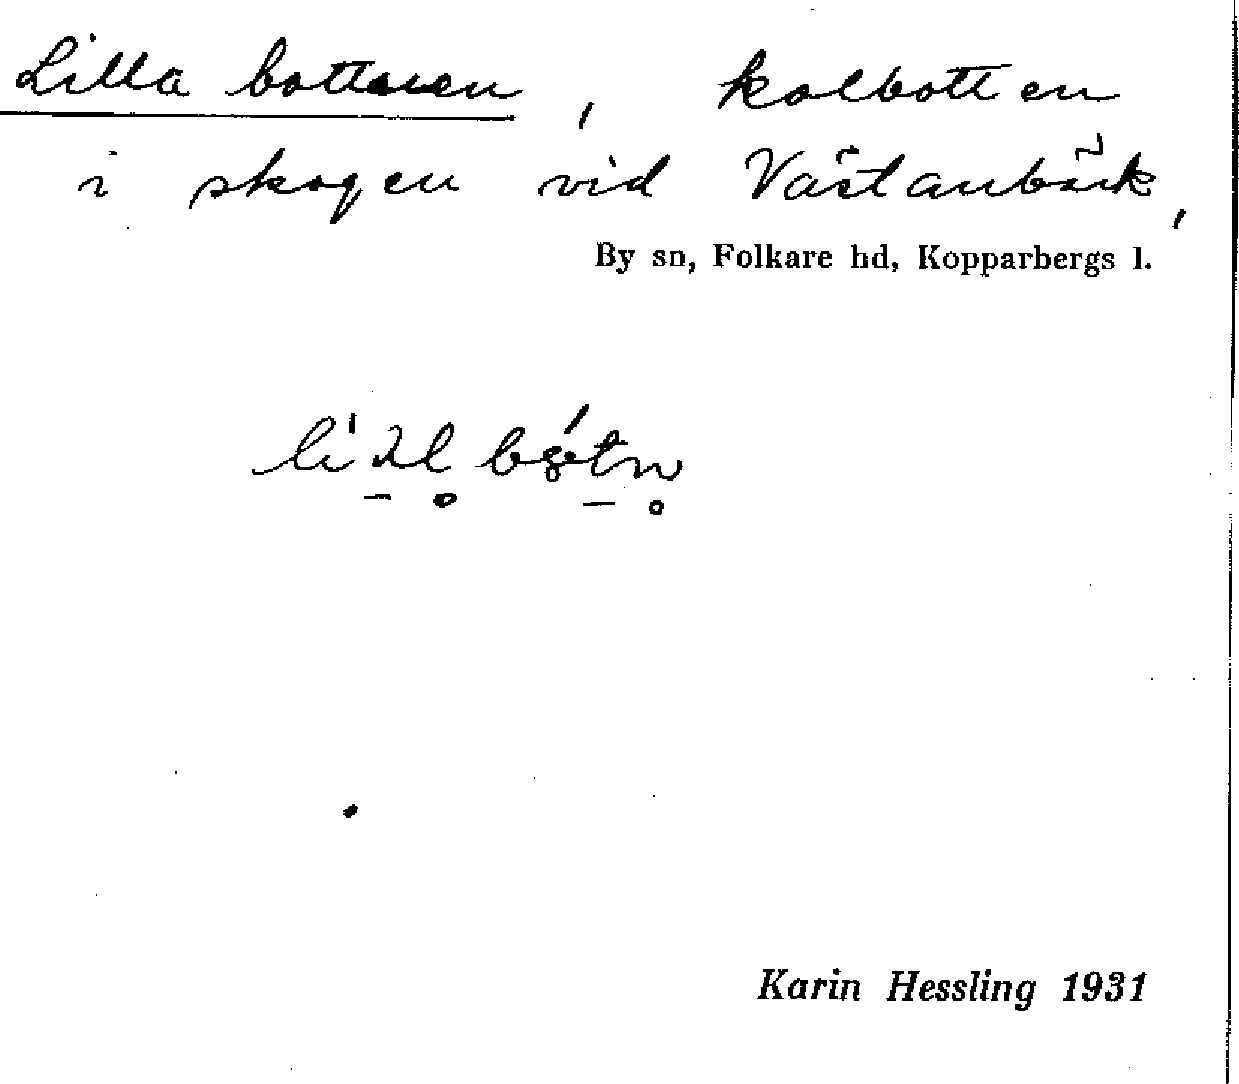 Lilla bottnen, kolbotten
i skogen vid Västanbäck,
By sn, Folkare hd, Kopparbergs l.
Karin Hessling 1931